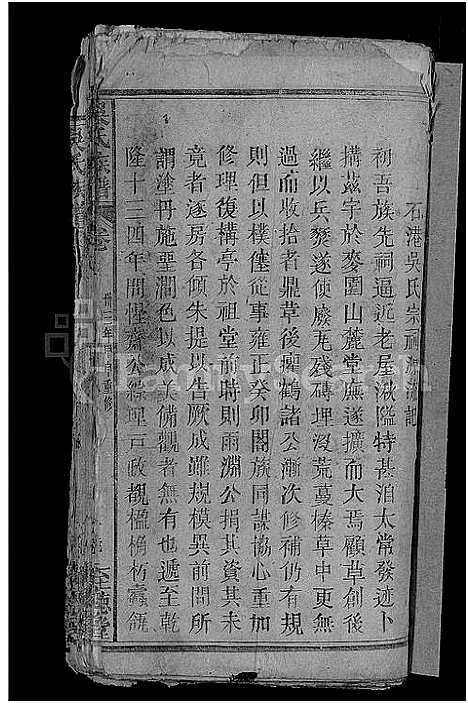 石港吳氏宗祠源流記
初吾族先祠逼近老屋湫隘特甚洎太常發迹卜
搆茲宇於麥園山麓堂廡遂擴而大焉顧草創後
繼以兵燹遂使廢瓦殘磚埋沒荒蔓榛草中更無
過而收拾者鼎革後癯鶴諸公漸次修補仍有規
則但以樸僿從事雍正癸卯閤族同謀協心重加
修理復構亭於祖堂前時則雨淵公捐其資其未
竟者逐房各傾朱提以告厥成雖規模異前間所
謂塗丹施堊潤色以成美備觀者無有也遞至乾
隆十三四年間惺齋公綜理戶政覩楹桷朽蠹瓴
吳氏族譜 卷
年 重修
至德堂
FamilySearch